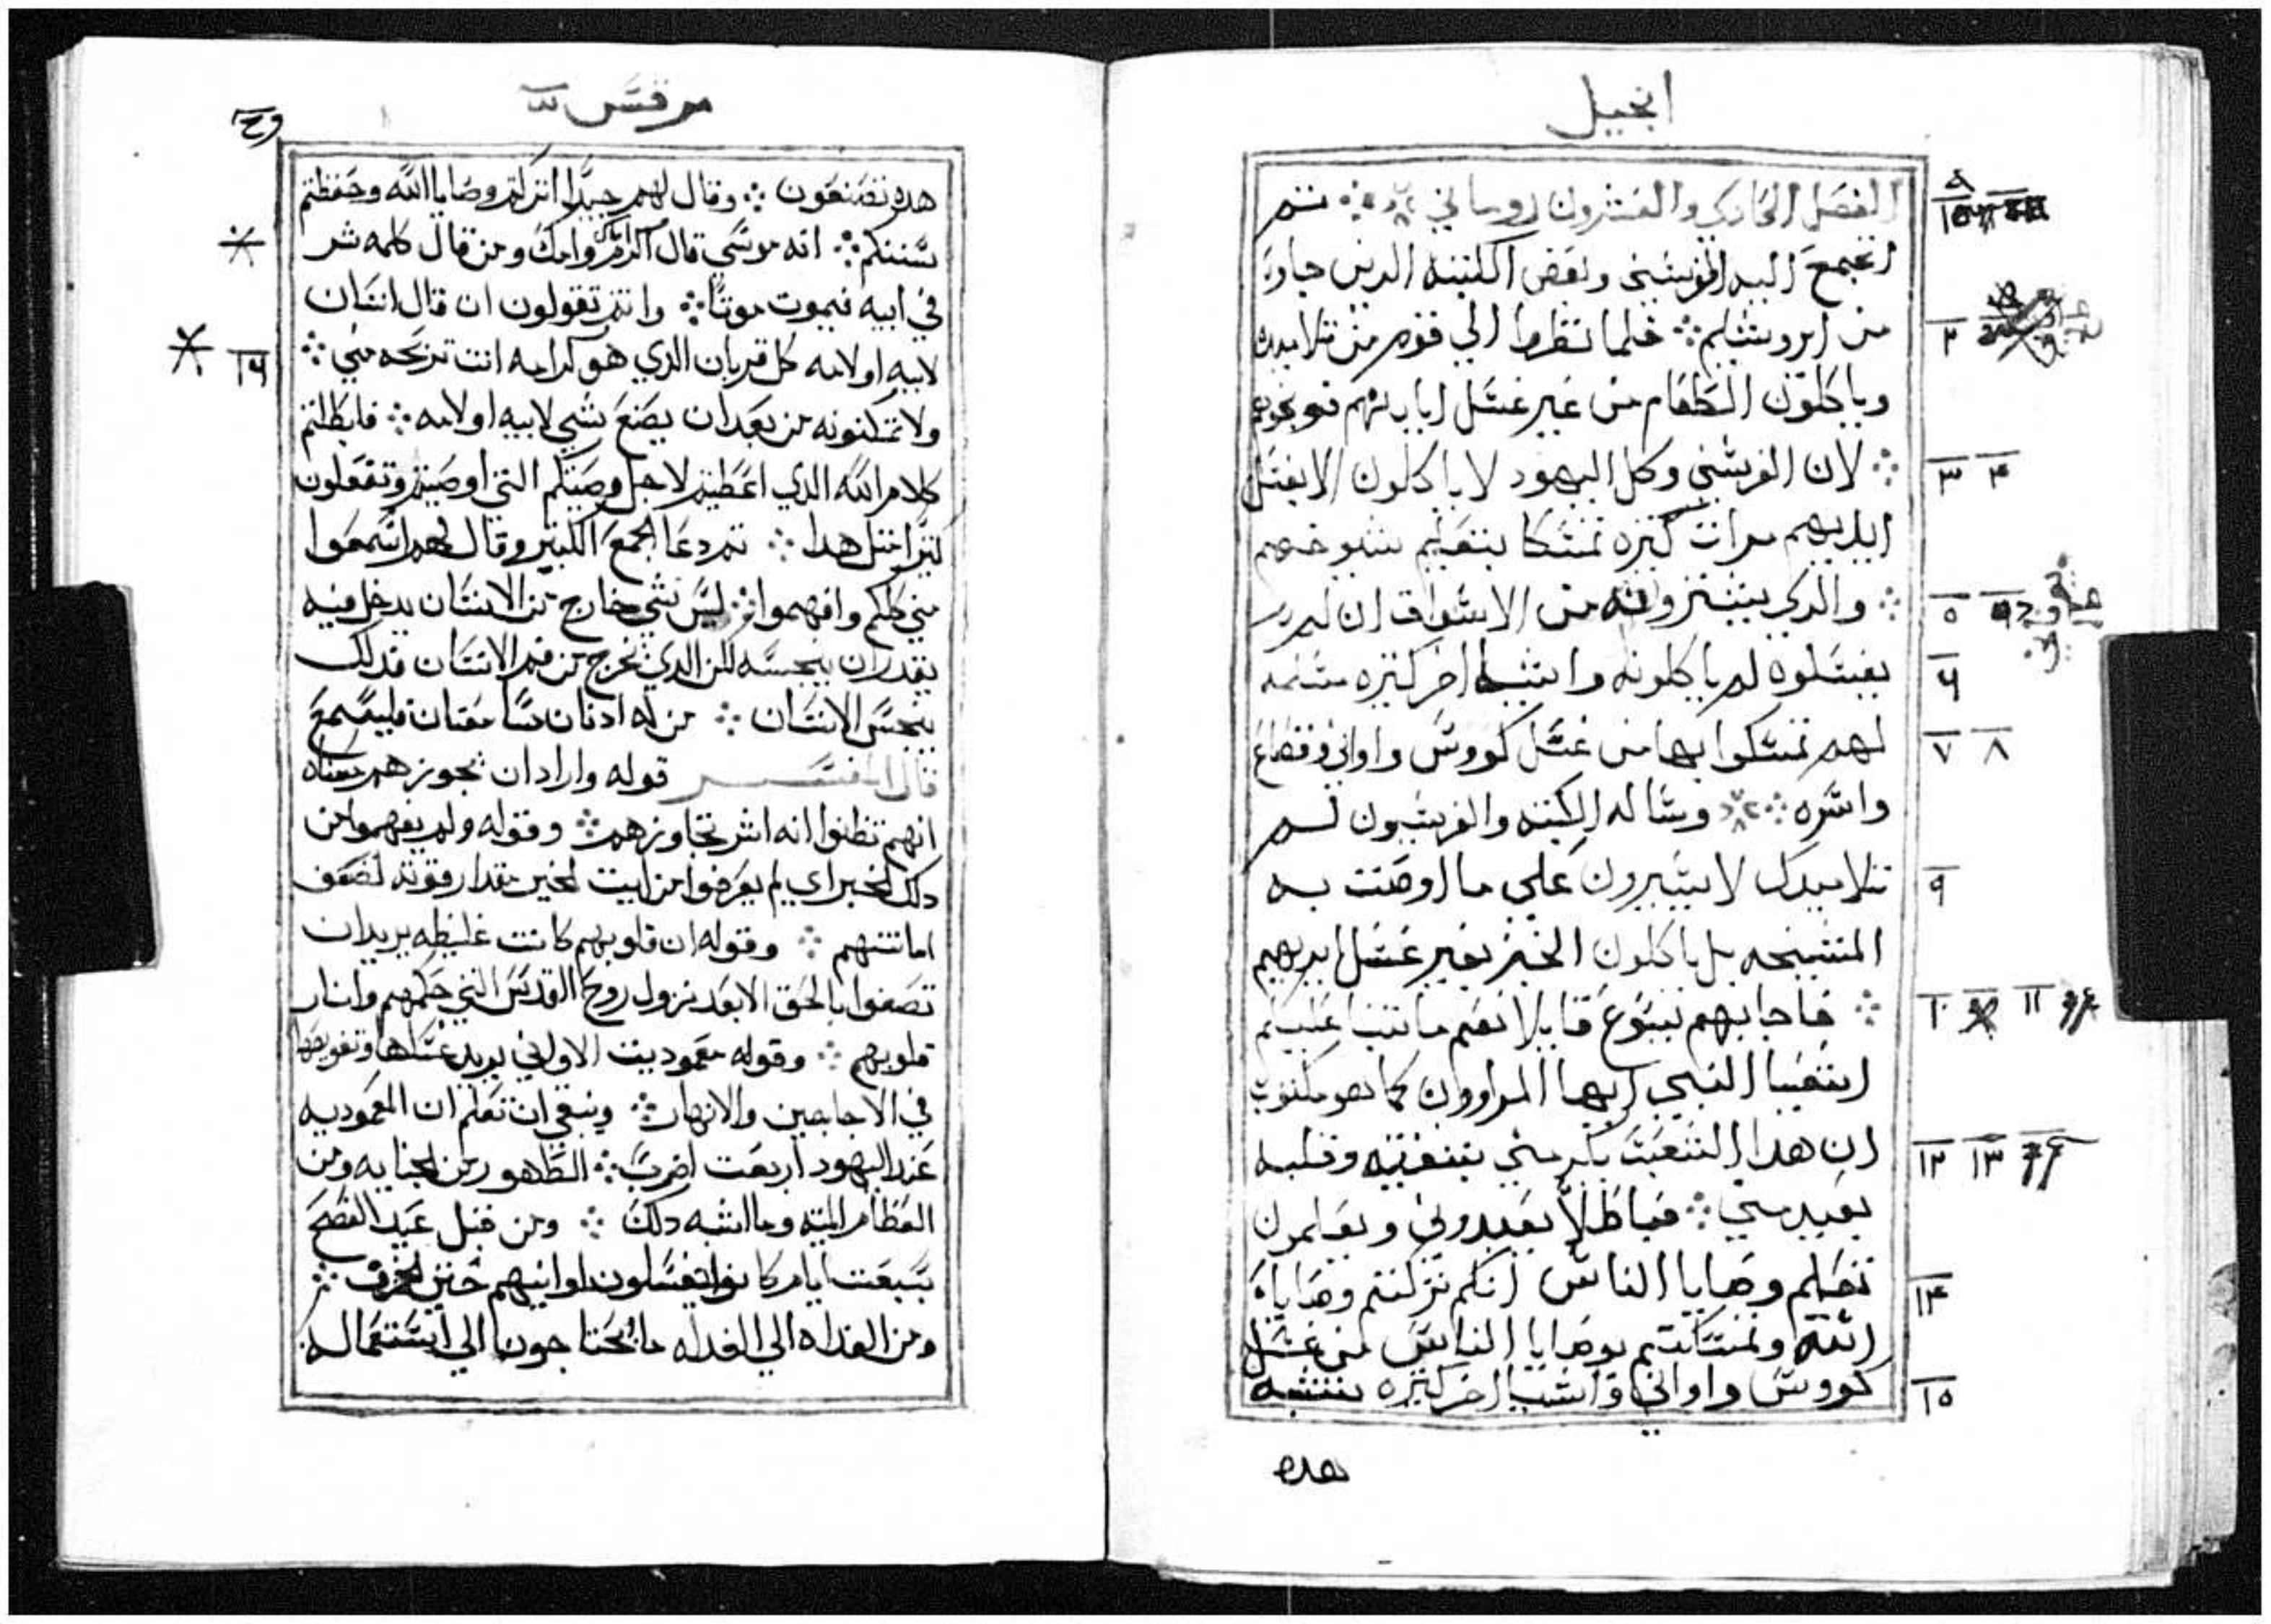 انجيل
الفصل الحادي والعشرون روماني ثم
اجتمع اليه الفريسيين وبعض الكتبه الدين جاوا
من ايروشليم ؞ فلما نظروا الي قوم من تلاميده
وياكلون الطعام من غير غسل اياديهم فوبخوهم
؞ لان الفريسين وكل اليهود لا ياكلون الا بغسل
ايديهم مرات كثيره تمسكا بتعليم شيوخهم
؞ والدي يشترونه من الاسواق ان لم
يغسلوه لم ياكلونه واشيا اخر كثيره مسلمه
لهم تمسكوا بها من غسل كووس واواني وقصاع
واسره ؞ وساله الكتبه والفريسيون لم
تلاميدك لا يسيرون علي ما اوصت به
المشيخه بل ياكلون الخبز بغير غسل ايديهم
؞ فاجابهم يسوع قايلا نعم ما تنبا عليكم
اشعيا النبي ايها المراوون كما هو مكتوب
ان هدا الشعب يكرمني بشفتيه وقلبه
بعيد مني ؞ فباطلاً يعبدوني ويعلمون
تعليم وصايا الناس انكم تركتم وصاياه
الله وتمسكتم بوصايا الناس من غسل
كووس واواني واشيا اخر كثيره تشبه
هده
٩
١
٢
٣ ٤
٥
٦
٧ ٨
٩
١٠ ١١
١٢ ١٣
١٤
١٥
مرقس
هده تصنعون ؞ وقال لهم جيداً اتركتم وصايا الله وحفظتم
سننكم ؞ انه موسي قال اكرم اباك وامك ومن قال كلمه شر
في ابيه فيموت موتاً ؞ وانتم تقولون ان قال انسان
لابيه او لامه كل قربان الدي هو كرامه انت تربحه مني ؞
ولا تمكنونه من بعد ان يصنع شي لابيه او لامه ؞ فابطلتم
كلام الله الدي اعطيتم لاجل وصيتكم التي اوصيتم وتفعلون
كثيراً مثل هدا ؞ ثم دعا الجمع الكبير وقال لهم اسمعوا
مني كلكم وافهموا ؞ ليس شي خارج عن الانسان يدخل فيه
يقدر ان ينجسه لكن الدي يخرج من فم الانسان فدلك
ينجس الانسان ؞ من له ادنان سامعتان فليسمع
قال المفسر قوله واراد ان يجوزهم معناه
انهم تظنوا انه اثر تجاوزهم ؞ وقوله ولم يفهموا من
دلك الخبز اي لم يعرفوا من ايت الخبز مقدار قوته لضعف
امانتهم ؞ وقوله ان قلوبهم كانت غليظه يريد ان
تصفوا بالحق الا بعد نزول روح القدس التي حكمهم وانار
قلوبهم ؞ وقوله معموديت الاواني يريد غسلها وتغويصها
في الاجاجين والانهار ؞ وينبغي ان تعلم ان المعموديه
عند اليهود اربعت اضرب ؞ الطهور من الجنابه ومن
العظام الميته وما اشبه دلك ؞ ومن قبل عيد الفصح
بسبعت ايام كانوا يغسلون اوانيهم حتي الخزف ؞
ومن الغداه الي الغداه ما يحتاجون الي استعماله
١٦